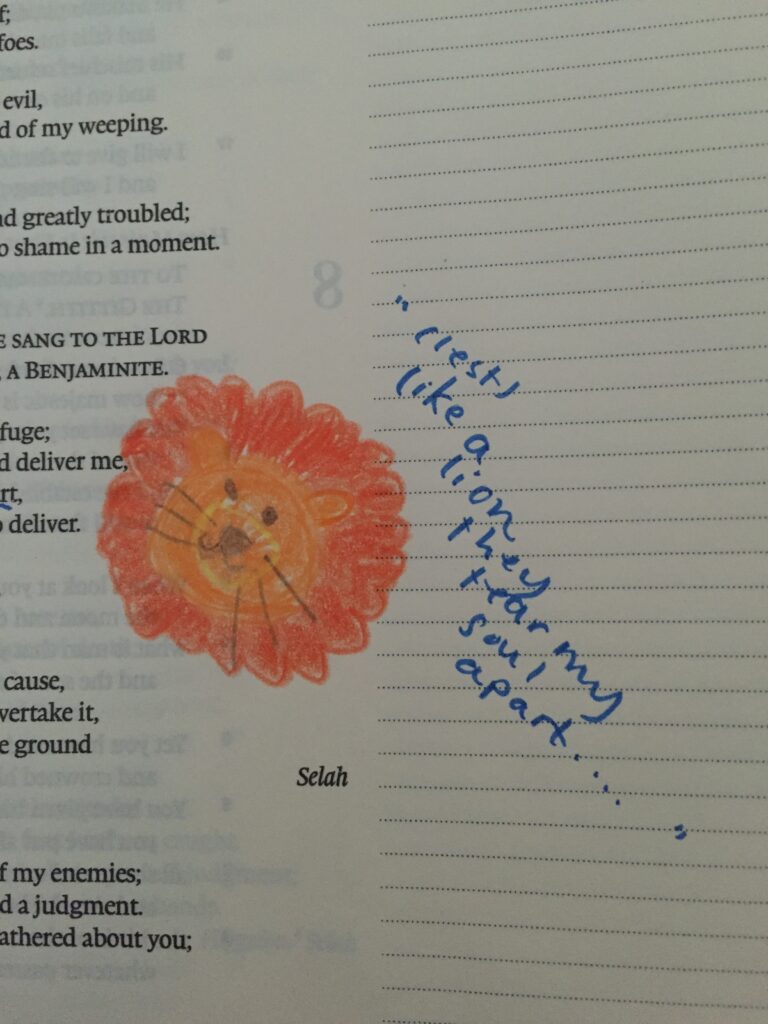 f;
foes.
evil,
d of my weeping.
nd greatly troubled;
o shame in a moment.
8
E SANG TO THE LORD
, A BENJAMINITE.
fuge;
d deliver me,
rt,
o deliver.
cause,
vertake it,
e ground
Selah
f my enemies;
d a judgment.
athered about you;
"(lest)
like a
lion
they
tear my
soul
apart....
"